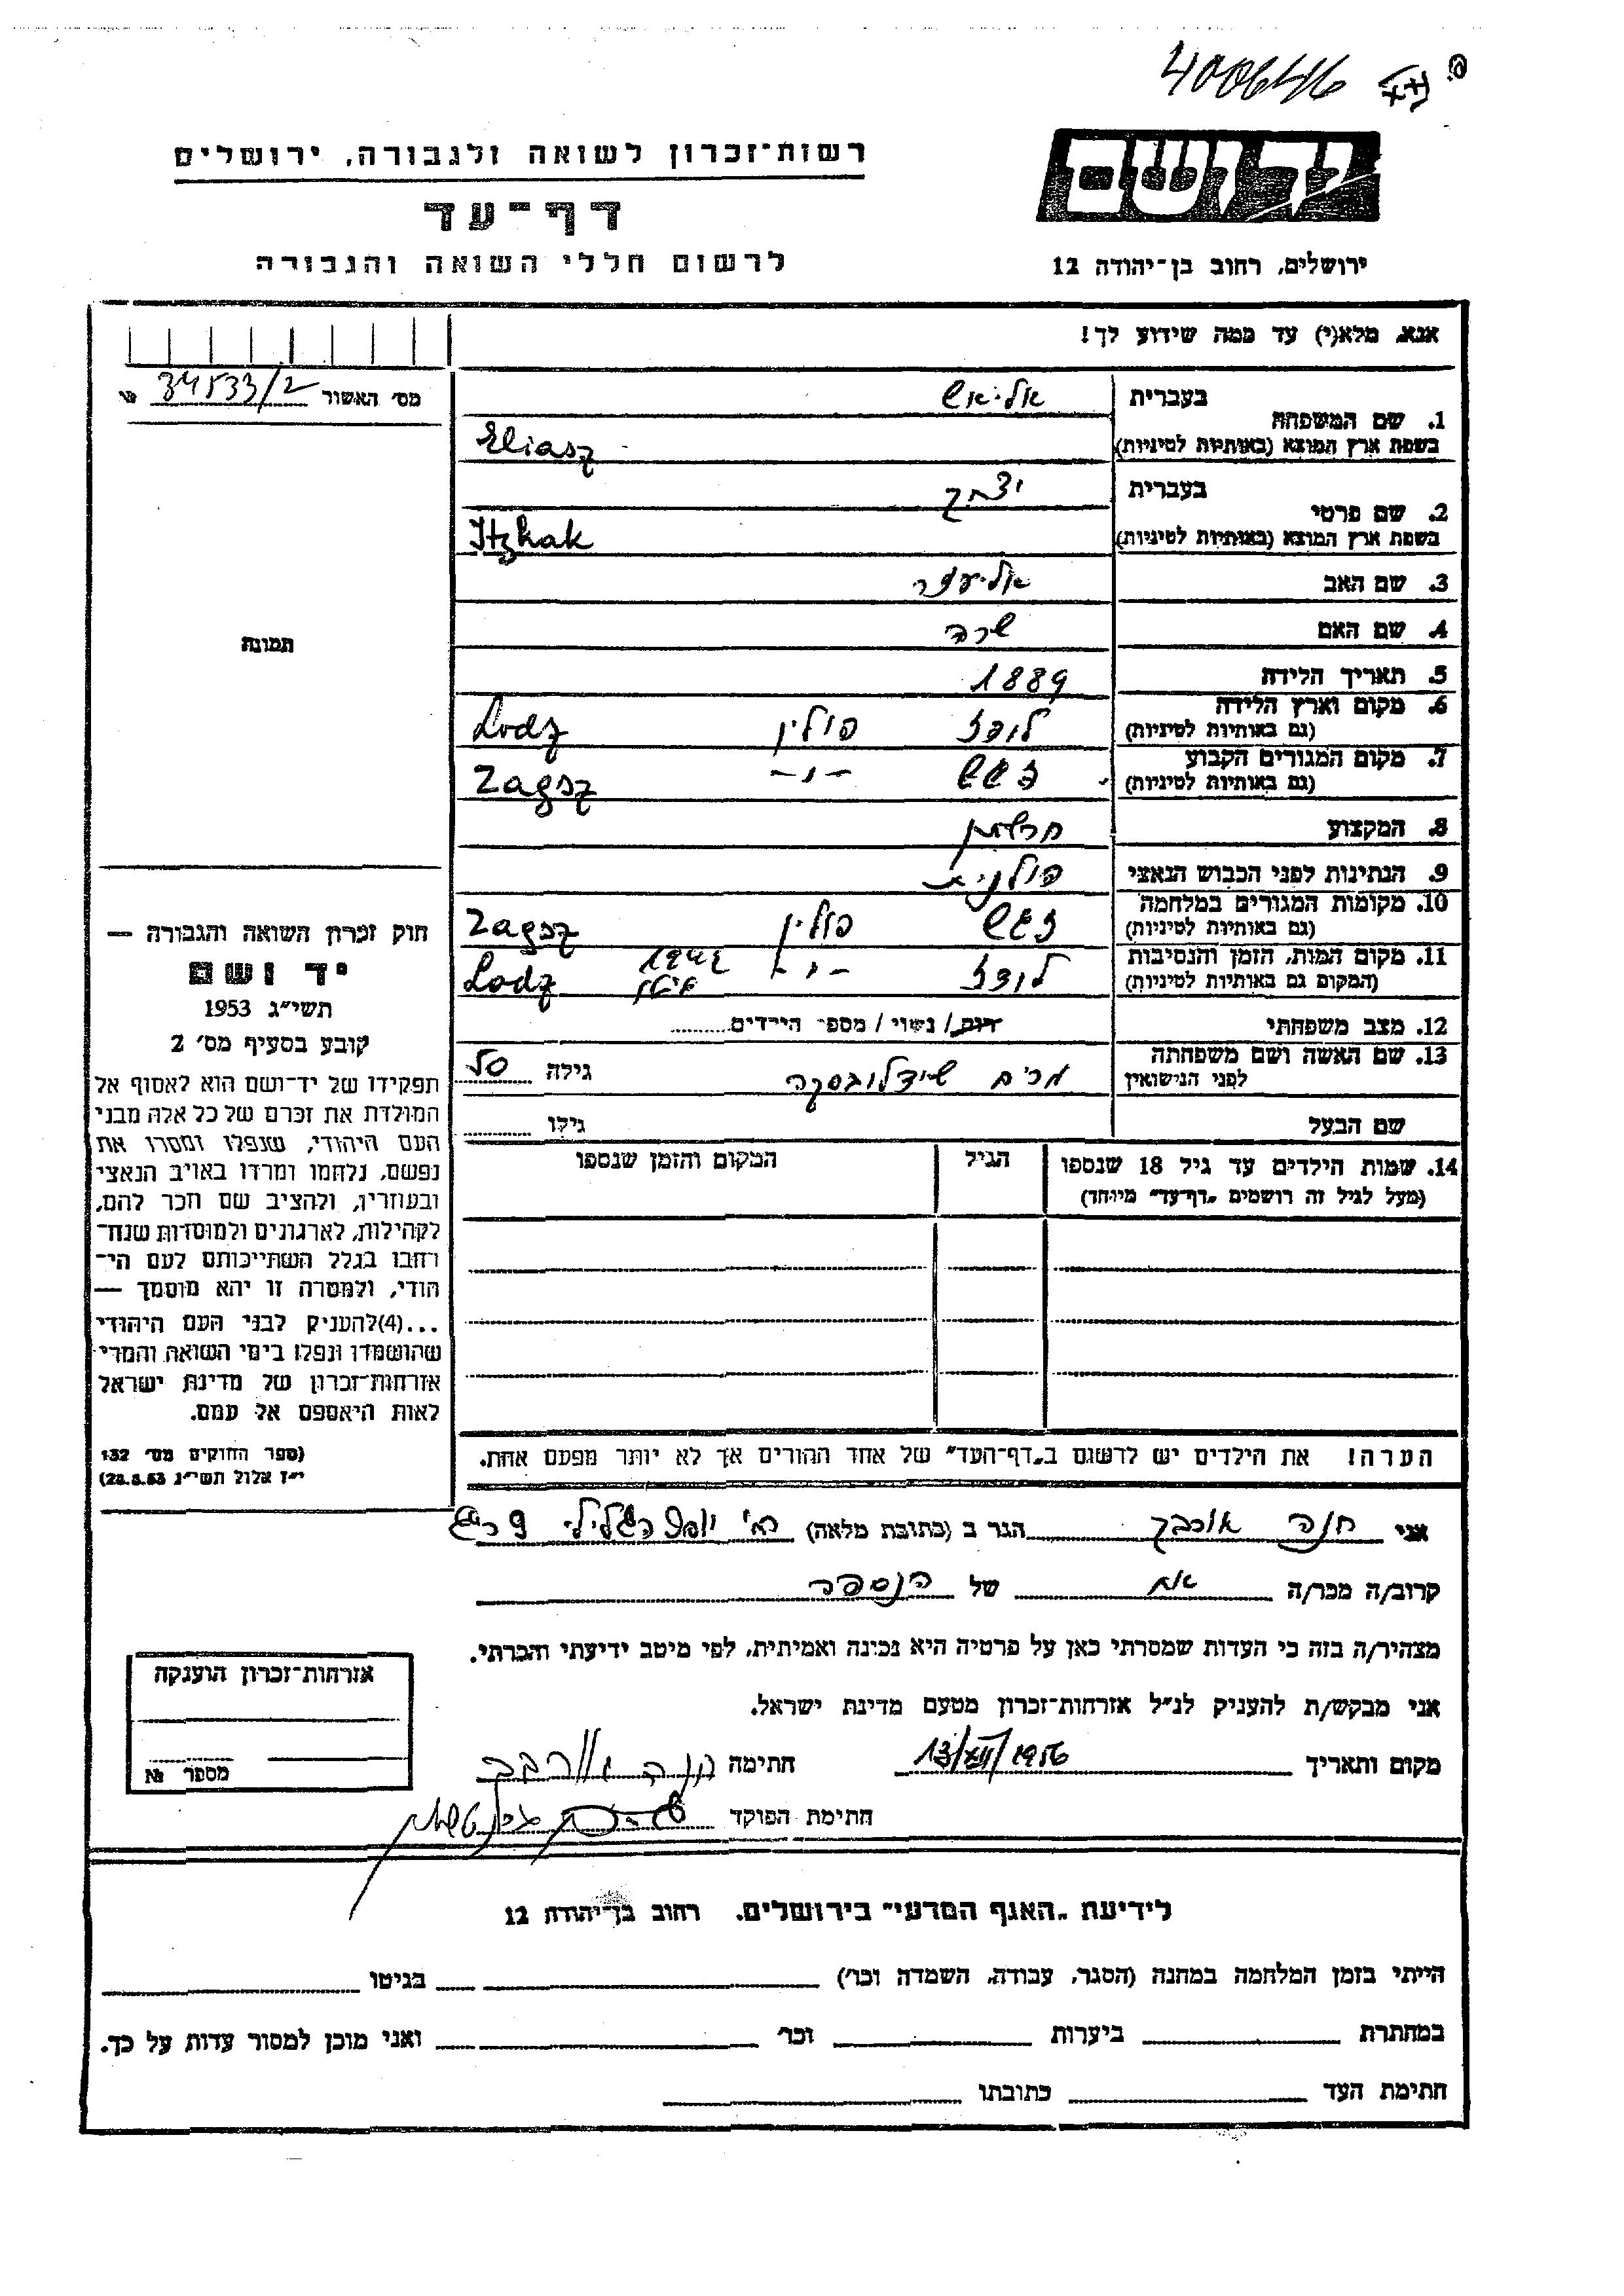 4006416
רשות־זכרון לשואה ולגבורה, ירושלים
יד ושם
דף־עד
לרשום חללי השואה והגבורה
ירושלים, רחוב בן־יהודה 12
אנא, מלא(י) עד כמה שידוע לך!
מס׳ האשור 34533/2
1. שם המשפחה
בעברית אליאש
בשפת ארץ המוצא (באותיות לטיניות) Eliasz
2. שם פרטי
בעברית יצחק
בשפת ארץ המוצא (באותיות לטיניות) Itzhak
3. שם האב אליעזר
4. שם האם שרה
5. תאריך הלידה 1889
6. מקום וארץ הלידה לודז פולין Lodz
(גם באותיות לטיניות)
7. מקום המגורים הקבוע זגש -"- Zagsz
(גם באותיות לטיניות)
8. המקצוע
9. הנתינות לפני הכבוש הנאצי פולנית
10. מקומות המגורים במלחמה זגש פולין Zagsz
(גם באותיות לטיניות)
11. מקום המות, הזמן והנסיבות לודז -"- 1942 Lodz
(המקום גם באותיות לטיניות)
12. מצב משפחתי רווק/ נשוי / מספר הילדים
13. שם האשה ושם משפחתה מרים שידלובסקה גילה 50
לפני הנישואין
שם הבעל גילו
14. שמות הילדים עד גיל 18 שנספו הגיל המקום והזמן שנספו
(מעל לגיל זה רושמים „דף־עד” מיוחד)
הערה! את הילדים יש לרשום ב„דף־העד” של אחד ההורים אך לא יותר מפעם אחת.
תמונה
חוק זכרון השואה והגבורה —
יד ושם
תשי״ג 1953
קובע בסעיף מס׳ 2
תפקידו של יד־ושם הוא לאסוף אל
המולדת את זכרם של כל אלה מבני
העם היהודי, שנפלו ומסרו את
נפשם, נלחמו ומרדו באויב הנאצי
ובעוזריו, ולהציב שם וזכר להם,
לקהילות, לארגונים ולמוסדות שנח־
רבו בגלל השתייכותם לעם הי־
הודי, ולמטרה זו יהא מוסמך —
...(4)להעניק לבני העם היהודי
שהושמדו ונפלו בימי השואה והמרי
אזרחות־זכרון של מדינת ישראל
לאות היאספם אל עמם.
(ספר החוקים מס׳ 132
י״ז אלול תשי״ג 28.8.53)
אני חנה אורבך הגר ב (כתובת מלאה) יוסף הגלילי 9
קרוב/ה מכר/ה של הנספה
מצהיר/ה בזה כי העדות שמסרתי כאן על פרטיה היא נכונה ואמיתית, לפי מיטב ידיעתי והכרתי.
אני מבקש/ת להעניק לנ״ל אזרחות־זכרון מטעם מדינת ישראל.
מקום ותאריך 13/XII/1956 חתימה חנה אורבך
חתימת הפוקד
אזרחות־זכרון הוענקה
מספר №
לידיעת „האגף המדעי” בירושלים, רחוב בן־יהודה 12
הייתי בזמן המלחמה במחנה (הסגר, עבודה, השמדה וכו׳) בגיטו
במחתרת ביערות וכו׳ ואני מוכן למסור עדות על כך.
חתימת העד כתובתו